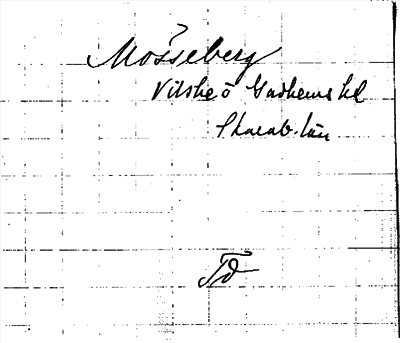 Mösseberg
Vilske o Gudhems hd
Skarab. län